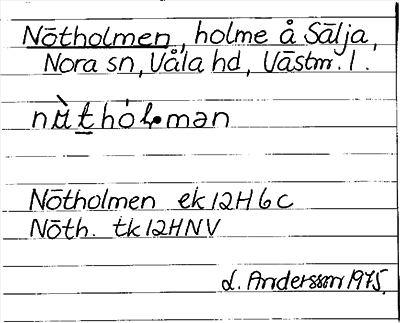 Nötholmen, holme å Sälja,
Nora sn, Våla hd, Västm. l.
Nötholmen ek 12H6c
Nöth. tk 12HNV
L. Andersson 1975.